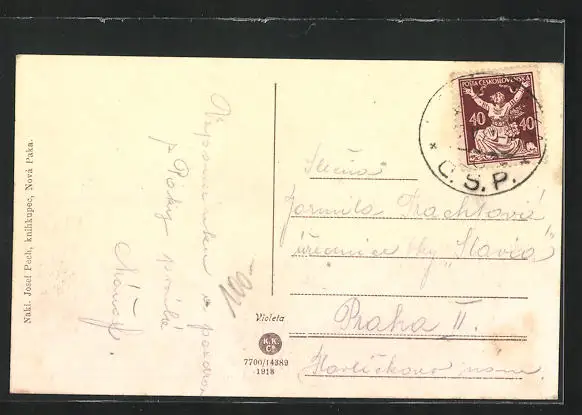 Nakl. Josef Pech, knihkupec, Nová Paka.
Vzpomínku a pozdrav
z Paky posílá
Violeta
K.K.
Co
7700/14389
1918
POŠTA ČESKOSLOVENSKÁ
40 40
Č.S.P.
Slečna
Jarmila Trachtová
úřednice bky "Slavia"
Praha II.
Havlíčkovo nám.